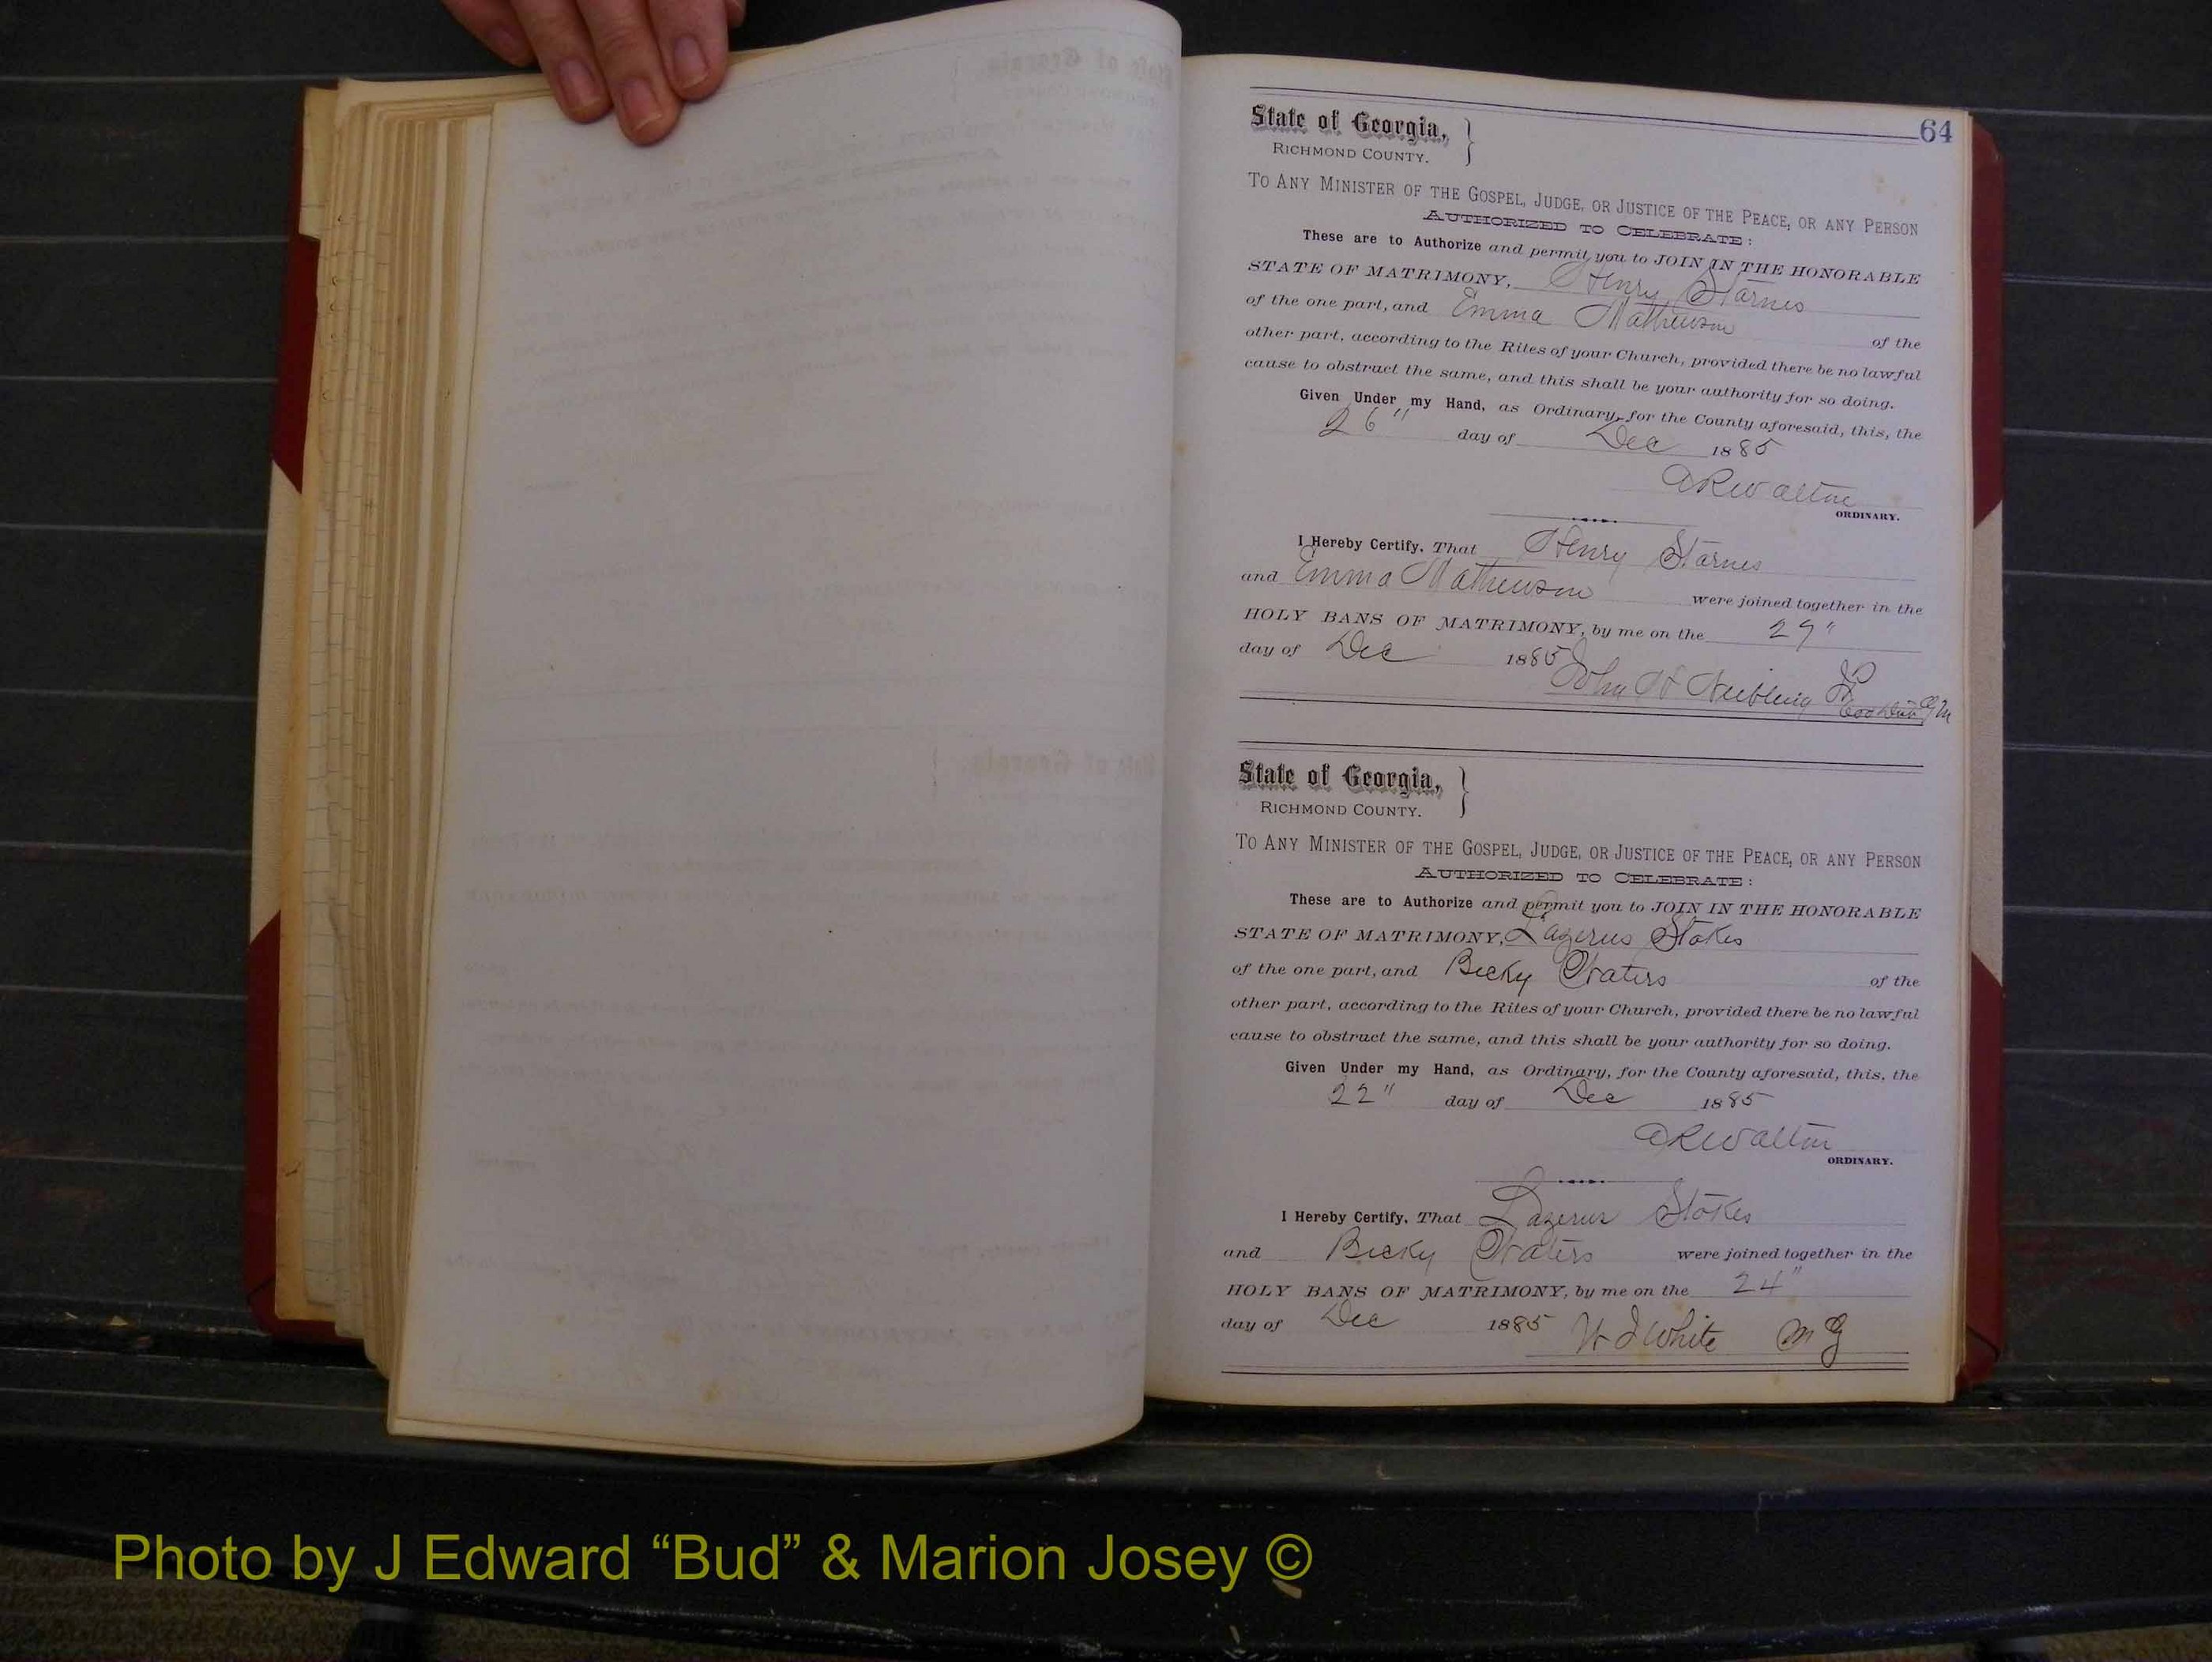 64
State of Georgia,
RICHMOND COUNTY.
TO ANY MINISTER OF THE GOSPEL, JUDGE, OR JUSTICE OF THE PEACE, OR ANY PERSON
AUTHORIZED TO CELEBRATE:
These are to Authorize and permit you to JOIN IN THE HONORABLE
STATE OF MATRIMONY, Henry Starnes
of the one part, and Emma Mathewson of the
other part, according to the Rites of your Church, provided there be no lawful
cause to obstruct the same, and this shall be your authority for so doing.
Given Under my Hand, as Ordinary, for the County aforesaid, this, the
26" day of Dec 1885
ARWalton
ORDINARY.
I Hereby Certify, That Henry Starnes
and Emma Mathewson were joined together in the
HOLY BANS OF MATRIMONY, by me on the 29"
day of Dec 1885
John H
State of Georgia,
RICHMOND COUNTY.
TO ANY MINISTER OF THE GOSPEL, JUDGE, OR JUSTICE OF THE PEACE, OR ANY PERSON
AUTHORIZED TO CELEBRATE:
These are to Authorize and permit you to JOIN IN THE HONORABLE
STATE OF MATRIMONY, Lazerus Stokes
of the one part, and Becky Waters of the
other part, according to the Rites of your Church, provided there be no lawful
cause to obstruct the same, and this shall be your authority for so doing.
Given Under my Hand, as Ordinary, for the County aforesaid, this, the
22" day of Dec 1885
ARWalton
ORDINARY.
I Hereby Certify, That Lazerus Stokes
and Becky Waters were joined together in the
HOLY BANS OF MATRIMONY, by me on the 24"
day of Dec 1885 W J White M G
Photo by J Edward “Bud” & Marion Josey ©